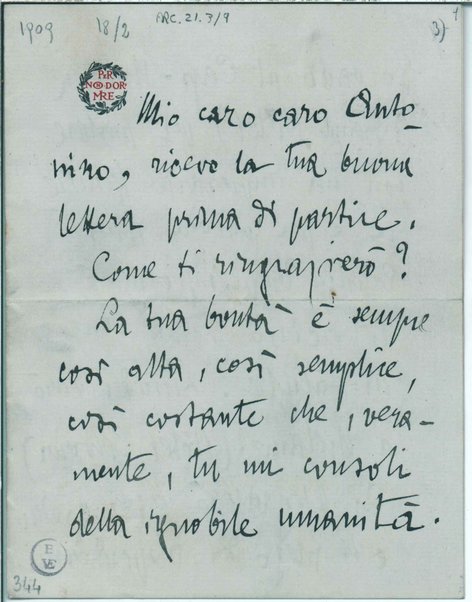 1909 18/2 ARC. 21. 3/9 3)
PER
NON DOR-
MIRE
Mio caro caro Anto-
nino, ricevo la tua buona
lettera prima di partire.
Come ti ringrazierò?
La tua bontà è sempre
così alta, così semplice,
così costante che, vera-
mente, tu mi consoli
della ignobile umanità.
344